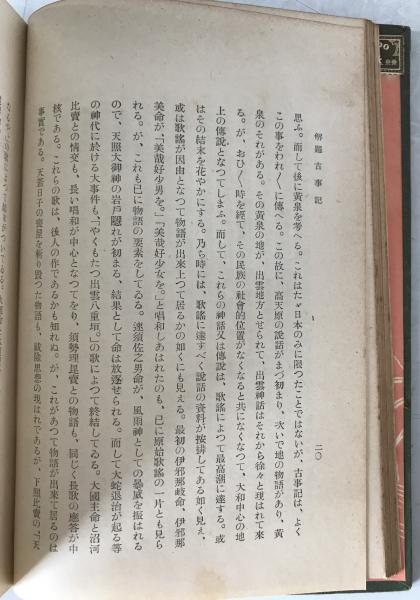 解題古事記
二〇
思ふ。而して後に黄泉を考へる。これはたゞ日本のみに限つたことではないが、古事記は、よく
この事をわれ〳〵に傳へる。この故に、高天原の說話がまづ初まり、次いで地の物語があり、黄
泉のそれがある。その黄泉の地が、出雲地方とせられて、出雲神話はそれから徐々と現はれて來
る。が、おひ〳〵時を經て、その民族の社會的位置がなくなると共になくなつて、大和中心の地
上の傳說となつてしまふ。而して、これらの神話又は傳說は、歌謠によつて最高潮に達する。或
はその結末を花やかにする。乃ち時には、歌謠に達すべく說話の資料が按排してある如く見え、
或は歌謠が因由となつて物語が出來上つて居るかの如くにも見える。最初の伊邪那岐命、伊邪那
美命が、「美哉好少男を。」「美哉好少女を。」と唱和しあはれたのも、已に原始歌謠の一片とも見ら
れる。が、これも已に物語の要素をしてゐる。速須佐之男命が、風雨神としての暴威を振はれる
ので、天照大御神の岩戶隱れが初まる、結果として命は放逐せられる。而して大蛇退治が起る等
の神代に於ける大事件も、「やくもたつ出雲八重垣。」の歌によつて終結してゐる。大國主命と沼河
比賣との情交も、長い唱和が中心となつてをり、須勢理毘賣との物語も、同じく長歌の應答が中
核である。これらの歌は、後人の作であるかも知れぬ。が、これがあつて物語が出來て居るのは
事實である。天若日子の喪屋を斬り毀つた物語も、祓除思想の現はれであるが、下照比賣の「天